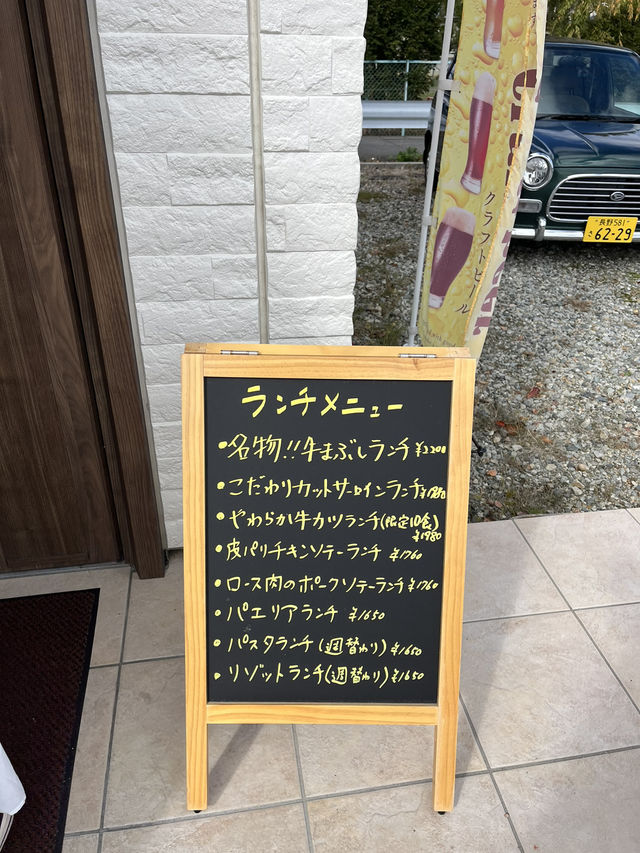 ランチメニュー
・名物!!牛まぶしランチ ¥2200
・こだわりカットサーロインランチ
・やわらか牛カツランチ(限定10食)
¥1980
・皮パリチキンソテーランチ ¥1760
・ロース肉のポークソテーランチ ¥1760
・パエリアランチ ¥1650
・パスタランチ(週替わり) ¥1650
・リゾットランチ(週替わり) ¥1650
クラフトビール
長野 581
さ 62-29